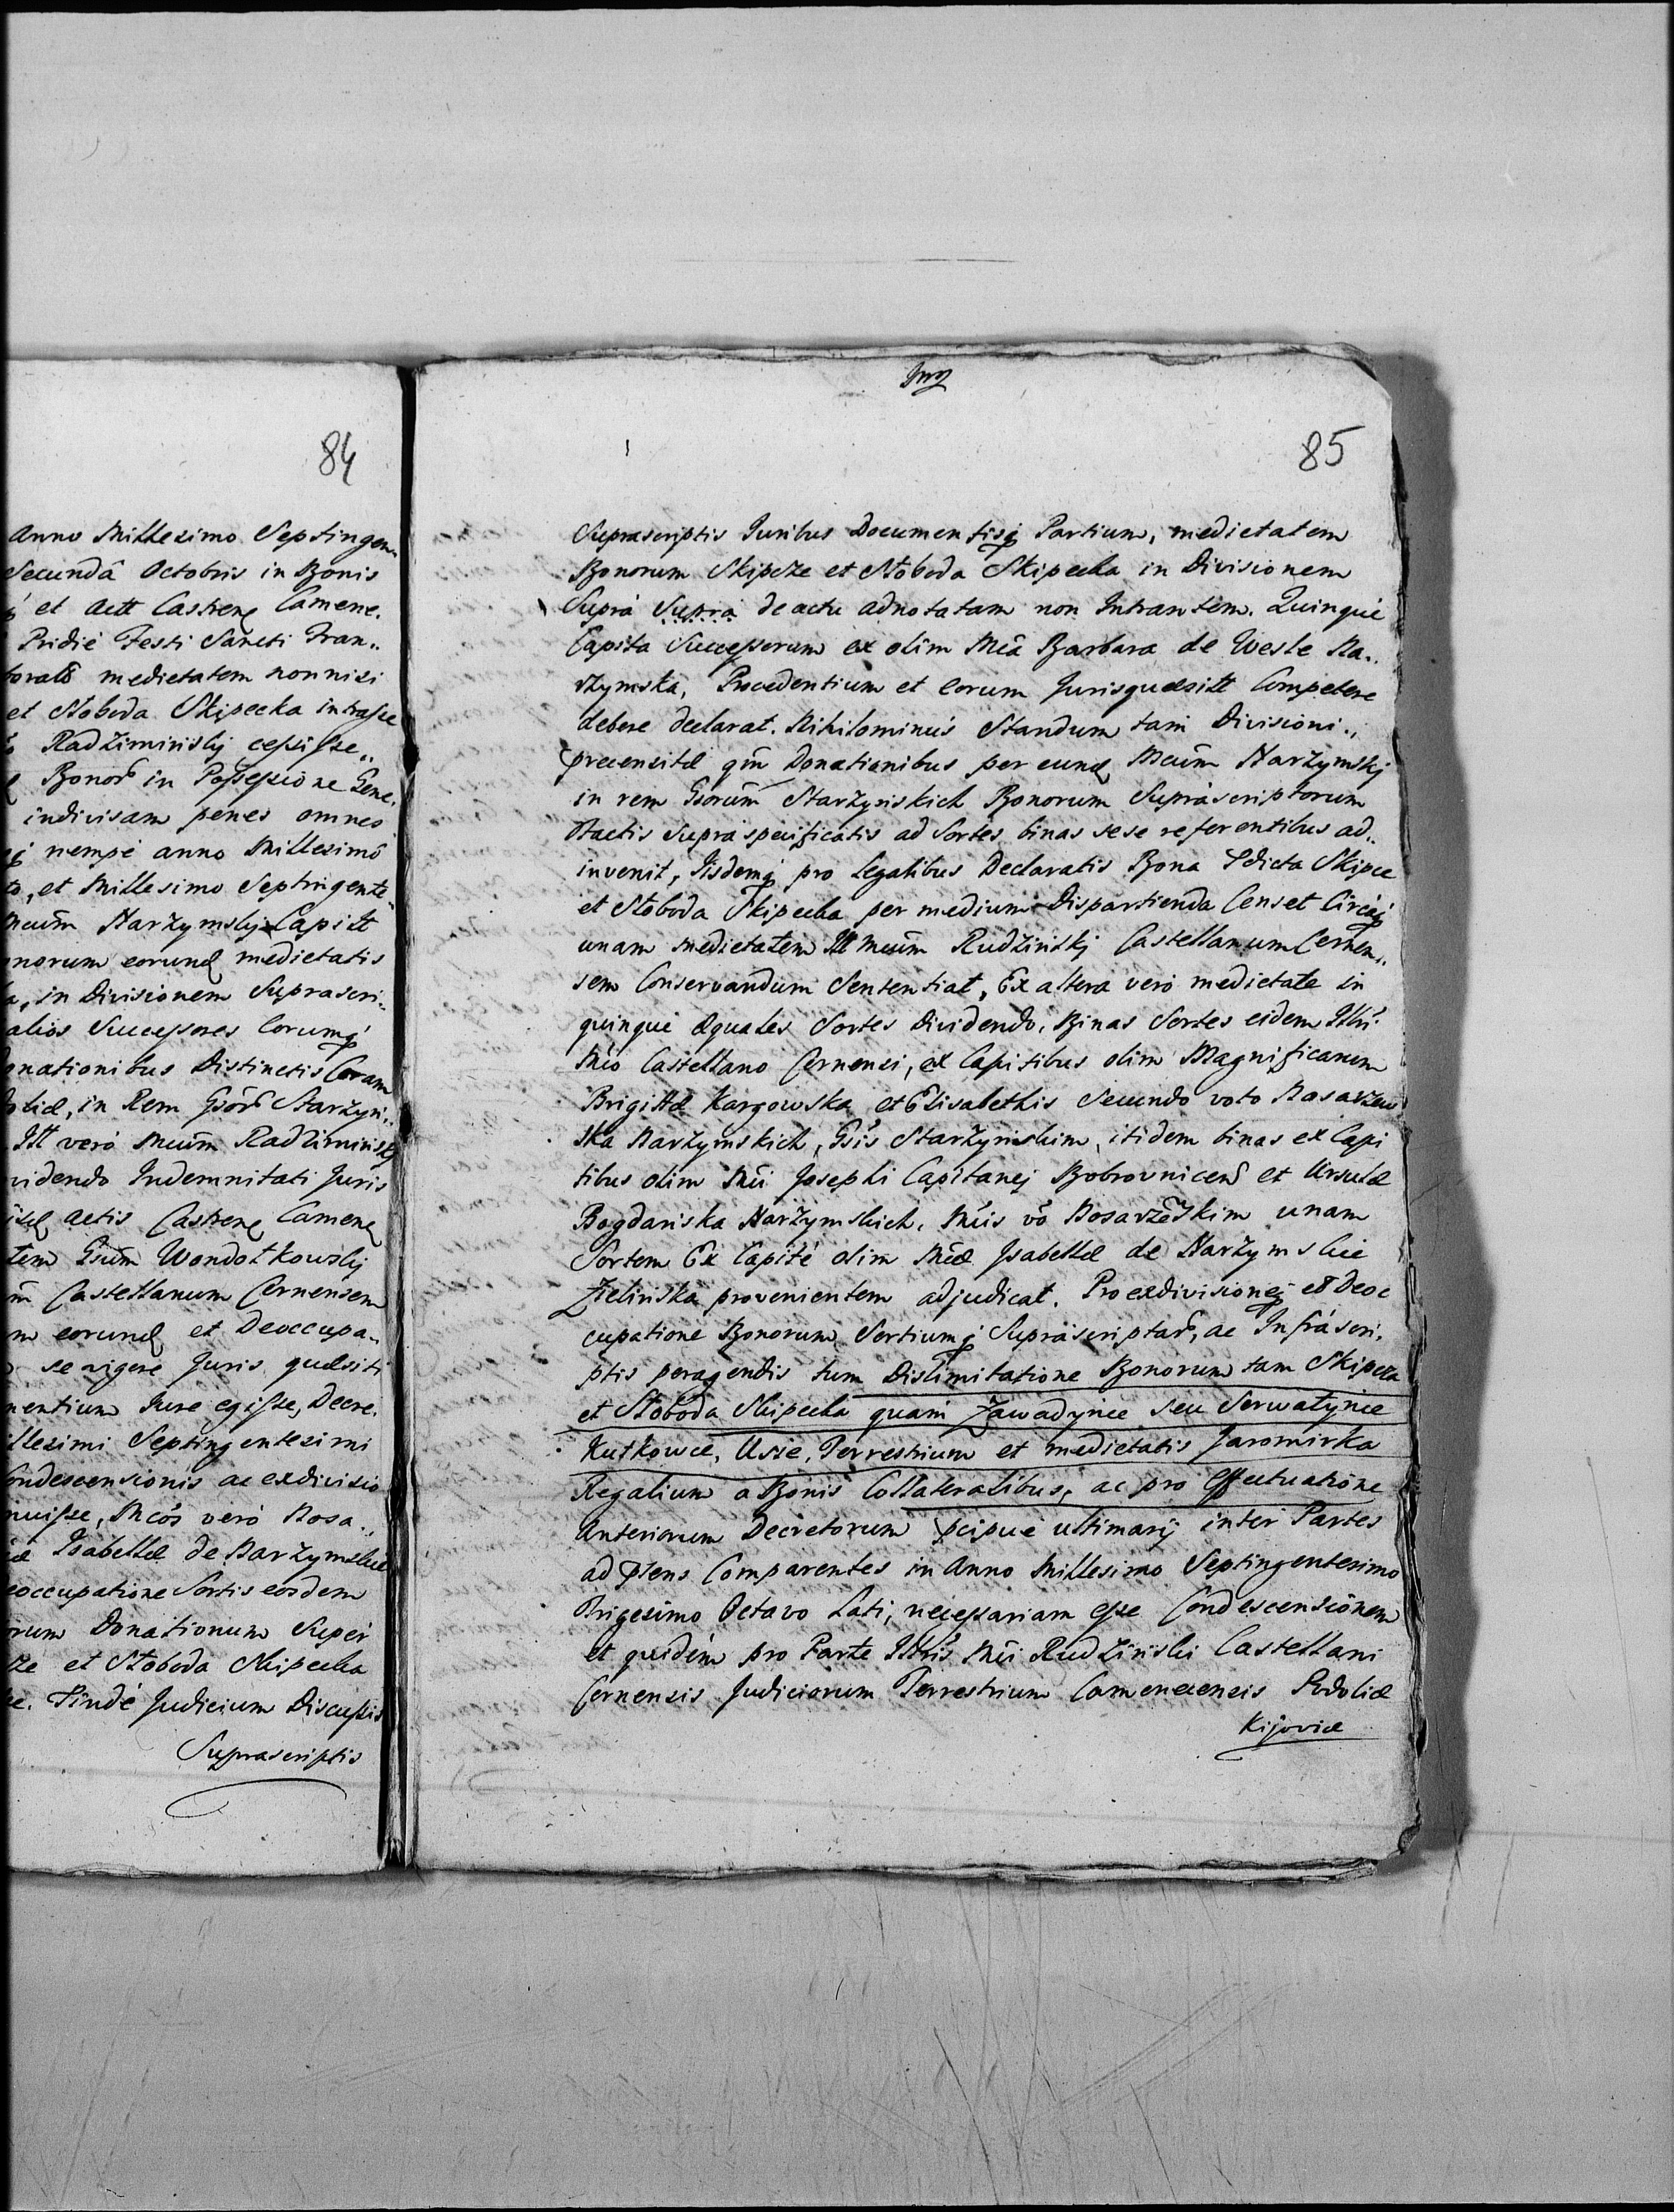 84
Anno Millesimo Septingen
Secundâ Octobris in Bonis
et Actt Castrenq Camene.
Pridiè Festi Sancti Fran..
medietatem nonnisi
et Słoboda Skipecka intrasse
Radzimiński cessisse..
Bonor in Possessione Gene.
indivisam penes omnes
nempè anno Millesimô
et Millesimo Septingente
Mcum Narżymskj Capitt
norum eorund medietatis
in Divisionem Suprascri..
alios Successores Eorumq
onationibus Distinctis Coram
in Rem Gsor Starżyń..
Itt verò Mcum Radzimiński
videndo Indemnitati Juris
Actis Castrenq Camenq
tem Gsum Wondołkowskj
Castellanum Cernensem
m eorund et Deoccupa..
se vigere Juris quæsiti
nentium Jure egisse, Decre.
illesimi Septingentesimi
Condescensionis ac exdivisio
nuisse, Mcos verò Rosa..
Isabellæ de Narżymskie
eoccupatione Sortis eosdem
orum Donationum Super
et Słoboda Skipecka
Judicium Discussis
Suprascriptis
85
Suprascriptis Juribus Documentisq Partium, medietatem
Bonorum Skipcze et Słoboda Skipecka in Divisionem
Suprà Supra de actu adnotatam non Intrantem. Quinquè
Capita Successorum ex olim Mcâ Barbara de Wesle Na..
rżymska, Procedentium et Eorum Jurisquæsitt Competere
debere declarat. Nihilominùs Standum tam Divisioni..
præcensitæ qm Donationibus per eund Mcum Narżymskj
in rem Gsorum Starżyńskich Bonorum Supràscriptorum
Actis Supràspecificatis ad Sortes binas sese referentibus ad..
invenit, Iisdemq pro Legalibus Declaratis Bona Pdicta Skipce
et Słoboda Skipecka per medium Dispartienda Censet Circaq
unam medietatem Itt Mcum Rudzińskj Castellanum Cernen..
sem Conservandum Sententiat, Ex altera verò medietate in
quinquè æquales Sortes Dividendo, Binas Sortes eidem Ittri
Mco Castellano Cernensi, ex Capitibus olim Magnificarum
Brigittæ Kargowska et Elisabethis Secundo voto Rosarzew
ska Narżymskich, Gsis Starżyńskim, itidem binas ex Capi
tibus olim Mci Josephi Capitanej Bobrovnicen et Ursulæ
Bogdańska Narżymskich, Mcis vo Rosarzewskim unam
Sortem Ex Capitè olim Mcæ Isabellæ de Narżymskie
Zielińska provenientem adjudicat. Pro exdivisioneq et deoc
cupatione Bonorum Sortiumq Supràscriptar, ac Infràscri.
ptis peragendis tum Dislimitatione Bonorum tam Skipcza
et Słoboda Skipecka quam Zawadynce seu Serwatynce
Kutkowce, Uście, Terrestrium et medietatis Jaromirka
Regalium a Bonis Collateralibus, ac pro Effectuatione
Anteriorum Decretorum pcipuè ultimarij inter Partes
ad Psens Comparentes in Anno Millesimo Septingentesimo
Trigesimo Octavo Lati, necessariam esse Condescensionem
et quidem pro Parte Ittris Mci Rudziński Castellani
Cernensis Judiciorum Terrestrium Camenecensis Podoliæ
Kijoviæ